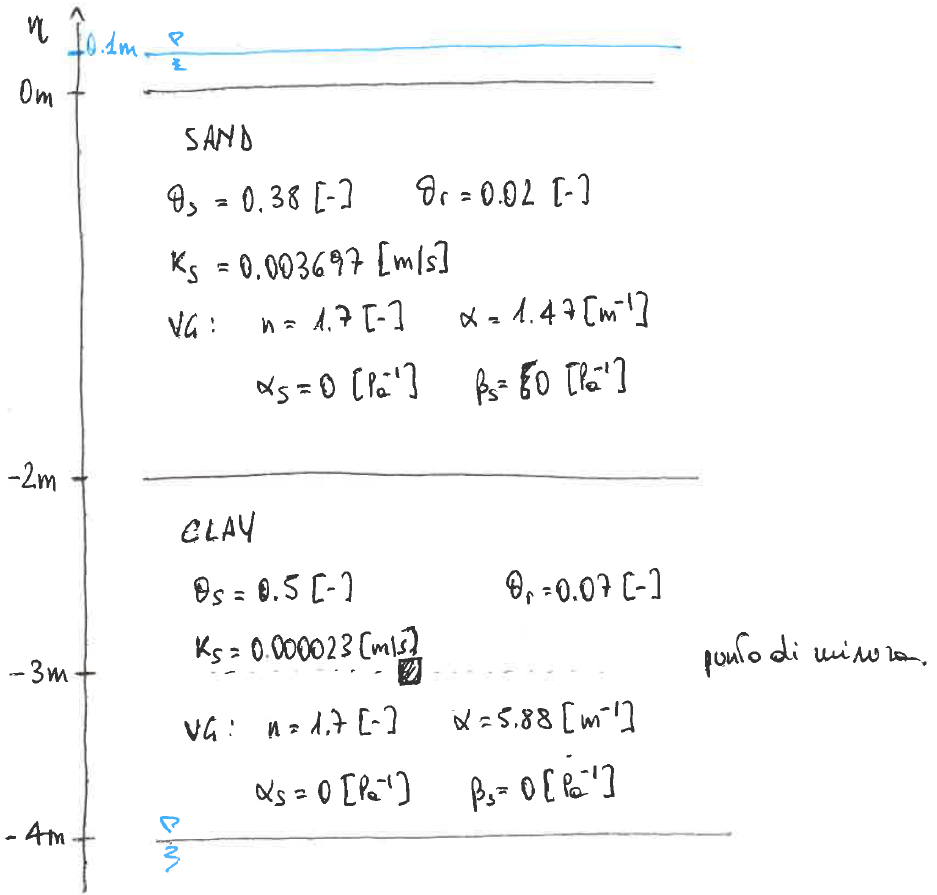 η
0.1m
0m
SAND
θs = 0.38 [-] θr = 0.02 [-]
Ks = 0.003697 [m/s]
VG: n = 1.7 [-] α = 1.47 [m⁻¹]
αs = 0 [Pa⁻¹] βs = 0 [Pa⁻¹]
-2m
CLAY
θs = 0.5 [-] θr = 0.07 [-]
Ks = 0.000023 [m/s]
-3m punto di misura.
VG: n = 1.7 [-] α = 5.88 [m⁻¹]
αs = 0 [Pa⁻¹] βs = 0 [Pa⁻¹]
-4m